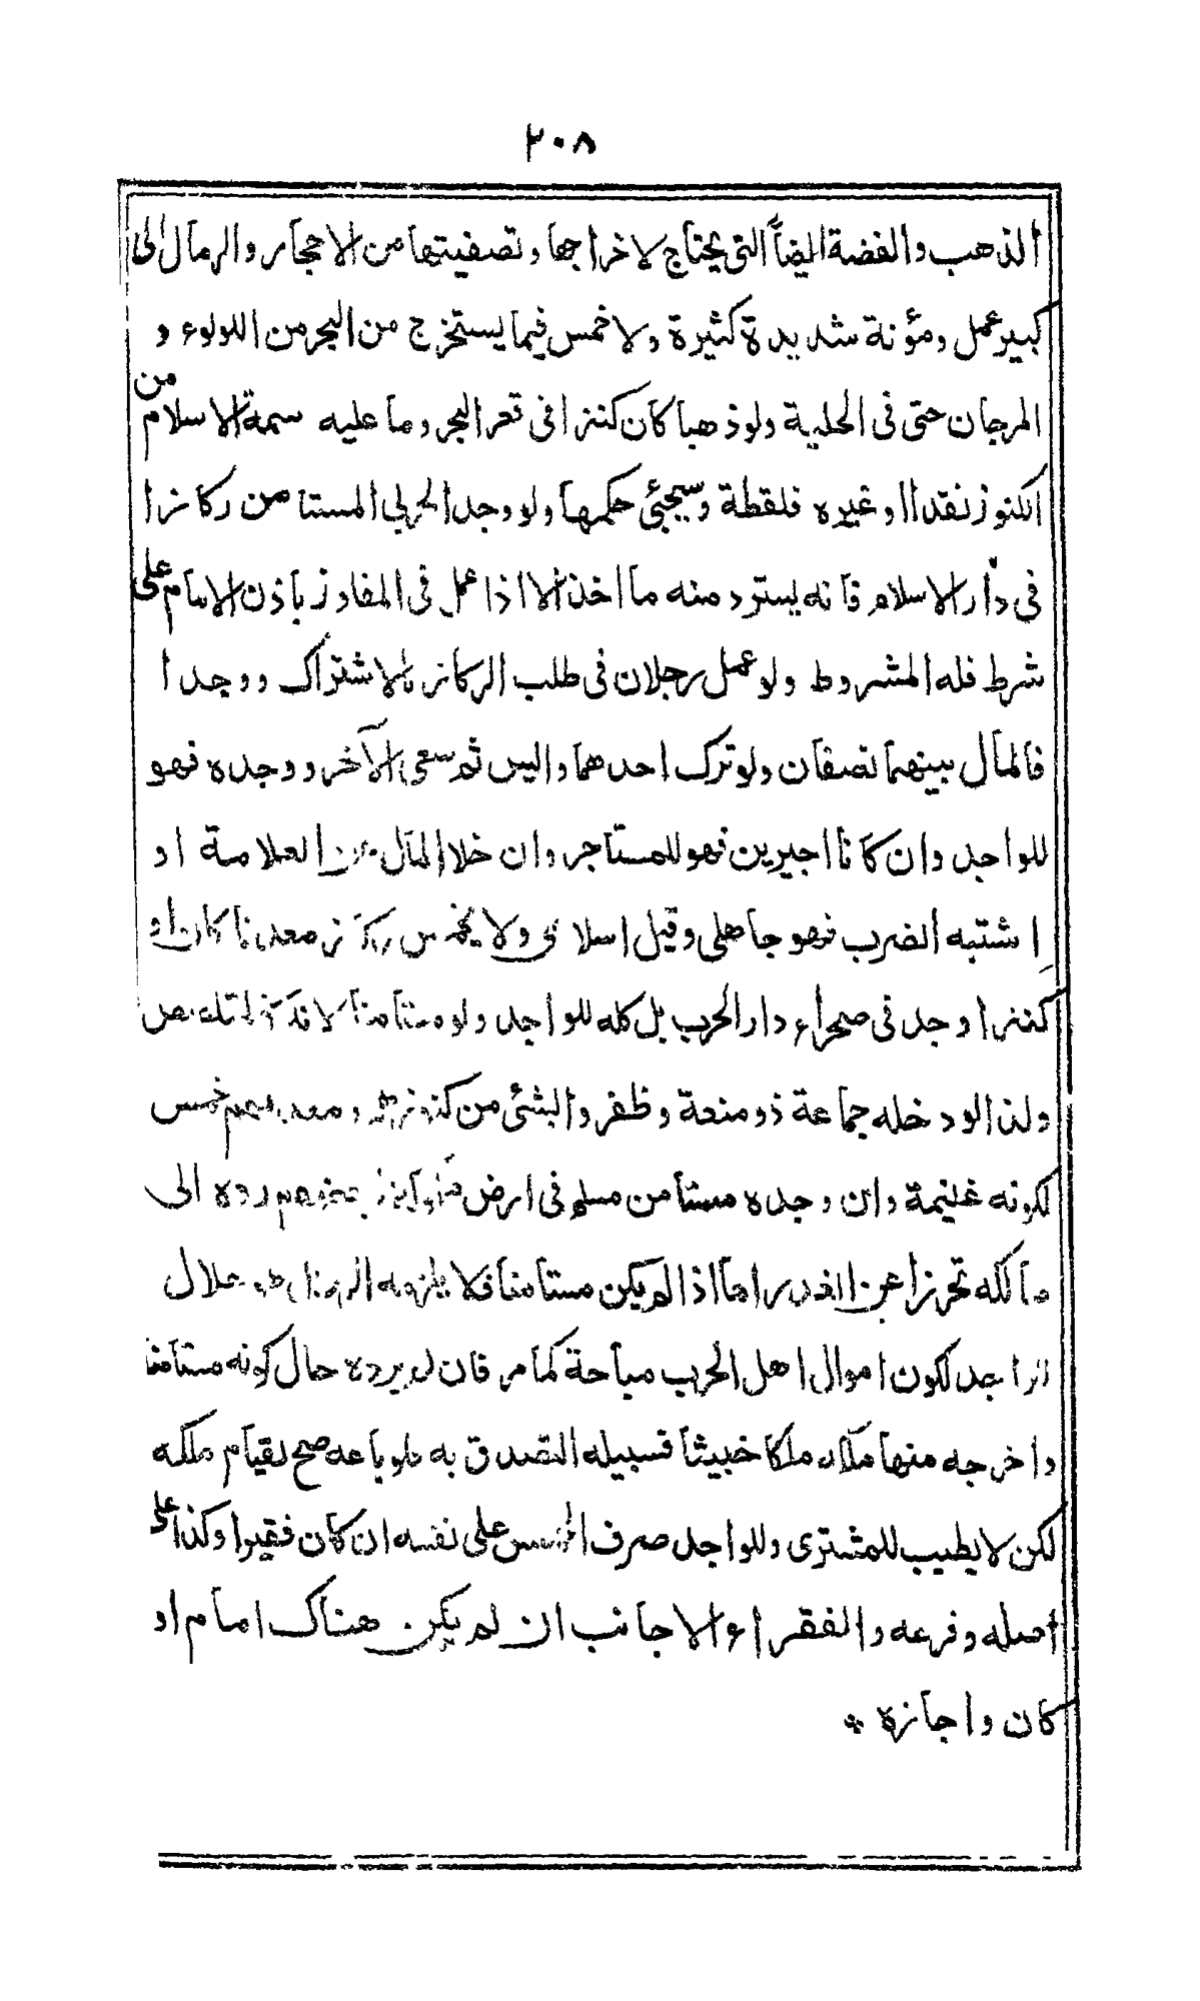 ٢٠٨
الذهب والفضة ايضاً التى يحتاج لاخراجها وتصفيتها من الاحجار والرمال الى
كبير عمل ومؤنة شديدة كثيرة ولا خمس فيما يستخرج من البحر من اللولوء و
المرجان حتى فى الحلية ولو ذهبا كان كنزا فى قعر البحر وما عليه سمة الاسلام من
الكنوز نقدا او غيره فلقطة وسيجئى حكمها ولو وجد الحربى المستامن ركازا
فى دار الاسلام فانه يسترد منه ما اخذ الا اذا عمل فى المفاوز باذن الامام على
شرط فله المشروط ولو عمل رجلان فى طلب الركاز بالاشتراك ووجدا
فالمال بينهما نصفان ولو ترك احدهما واليس ثم سعى الآخر ووجده فهو
للواجد وان كانا اجيرين فهو للمستاجر وان خلا المال من العلامة او
اشتبه الضرب فهو جاهلى وقيل اسلامى ولا يخمس ركاز معدنا كان او
كنزا وجد فى صحراء دار الحرب بل كله للواجد ولو مستامنا لانه كالمتلصص
ولذا لو دخله جماعة ذو منعة وظفروا بشئى من كنوزهم ومعدنهم خمس
لكونه غنيمة وان وجده مستامن مسلم فى ارض مملوكة لبعضهم رده الى
مالكه تحرزا عن الغدر اما اذا لم يكن مستامنا فلا يلزمه الرد حلال
للواجد لكون اموال اهل الحرب مباحة كما مر فان لم يرده حال كونه مستامنا
واخرجه منها ملكه ملكا خبيثا فسبيله التصدق به فلو باعه صح لقيام ملكه
لكن لا يطيب للمشترى وللواجد صرف الخمس على نفسه ان كان فقيرا وكذا على
اصله وفرعه والفقراء الاجانب ان لم يكن هناك امام او
كان واجازه *